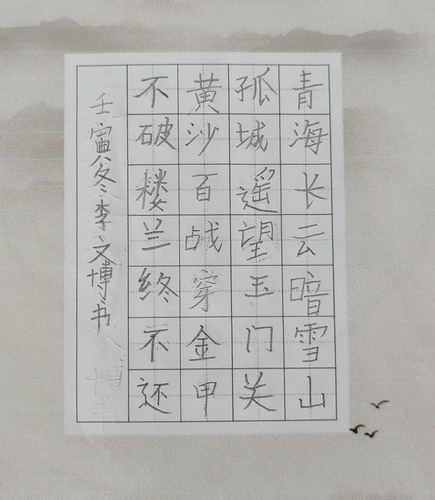 青海长云暗雪山
孤城遥望玉门关
黄沙百战穿金甲
不破楼兰终不还
壬寅冬李文博书